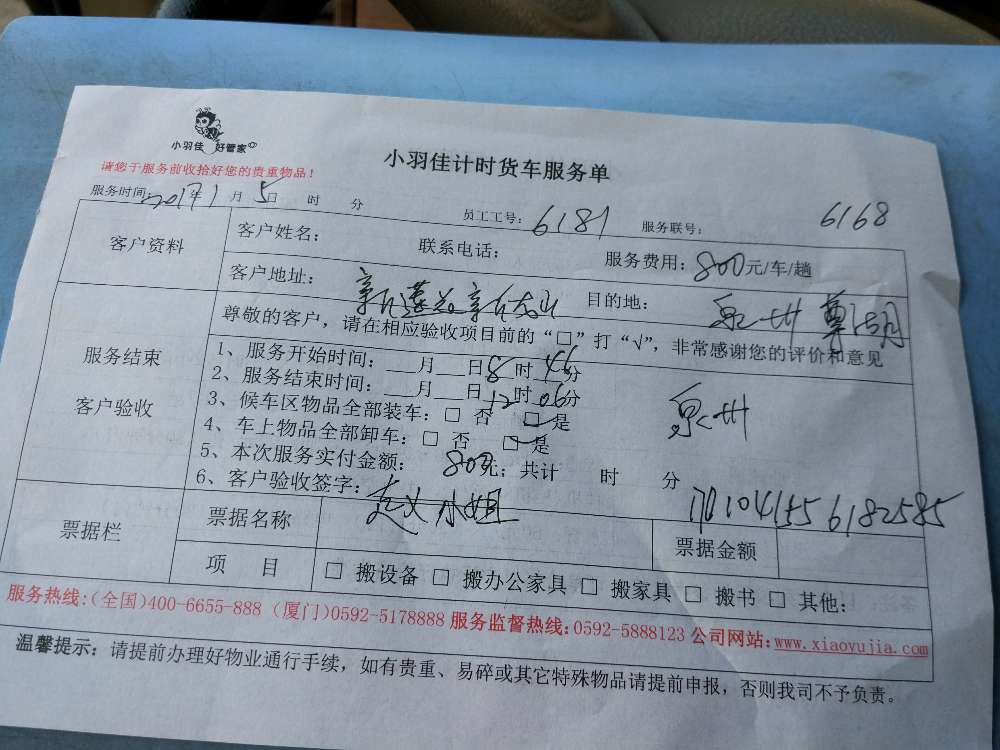 小羽佳 好管家
小羽佳计时货车服务单
请您于服务前收拾好您的贵重物品！
服务时间：2017年1月5日 时 分 员工工号：6181 服务联号：6168
客户资料 客户姓名： 联系电话： 服务费用：800元/车/趟
客户地址： 目的地：泉州
服务结束 客户验收
尊敬的客户，请在相应验收项目前的“□”打“√”，非常感谢您的评价和意见
1、服务开始时间：___月___日8时46分
2、服务结束时间：___月___日12时06分
3、候车区物品全部装车：□ 否 □ 是
泉州
4、车上物品全部卸车：□ 否 □ 是
5、本次服务实付金额：800元；共计 时 分
6、客户验收签字：赵小姐
1701041556182585
票据栏 票据名称 票据金额
项 目 □ 搬设备 □ 搬办公家具 □ 搬家具 □ 搬书 □ 其他：
服务热线：(全国)400-6655-888 (厦门)0592-5178888 服务监督热线：0592-5888123 公司网站：www.xiaoyujia.com
温馨提示：请提前办理好物业通行手续，如有贵重、易碎或其它特殊物品请提前申报，否则我司不予负责。